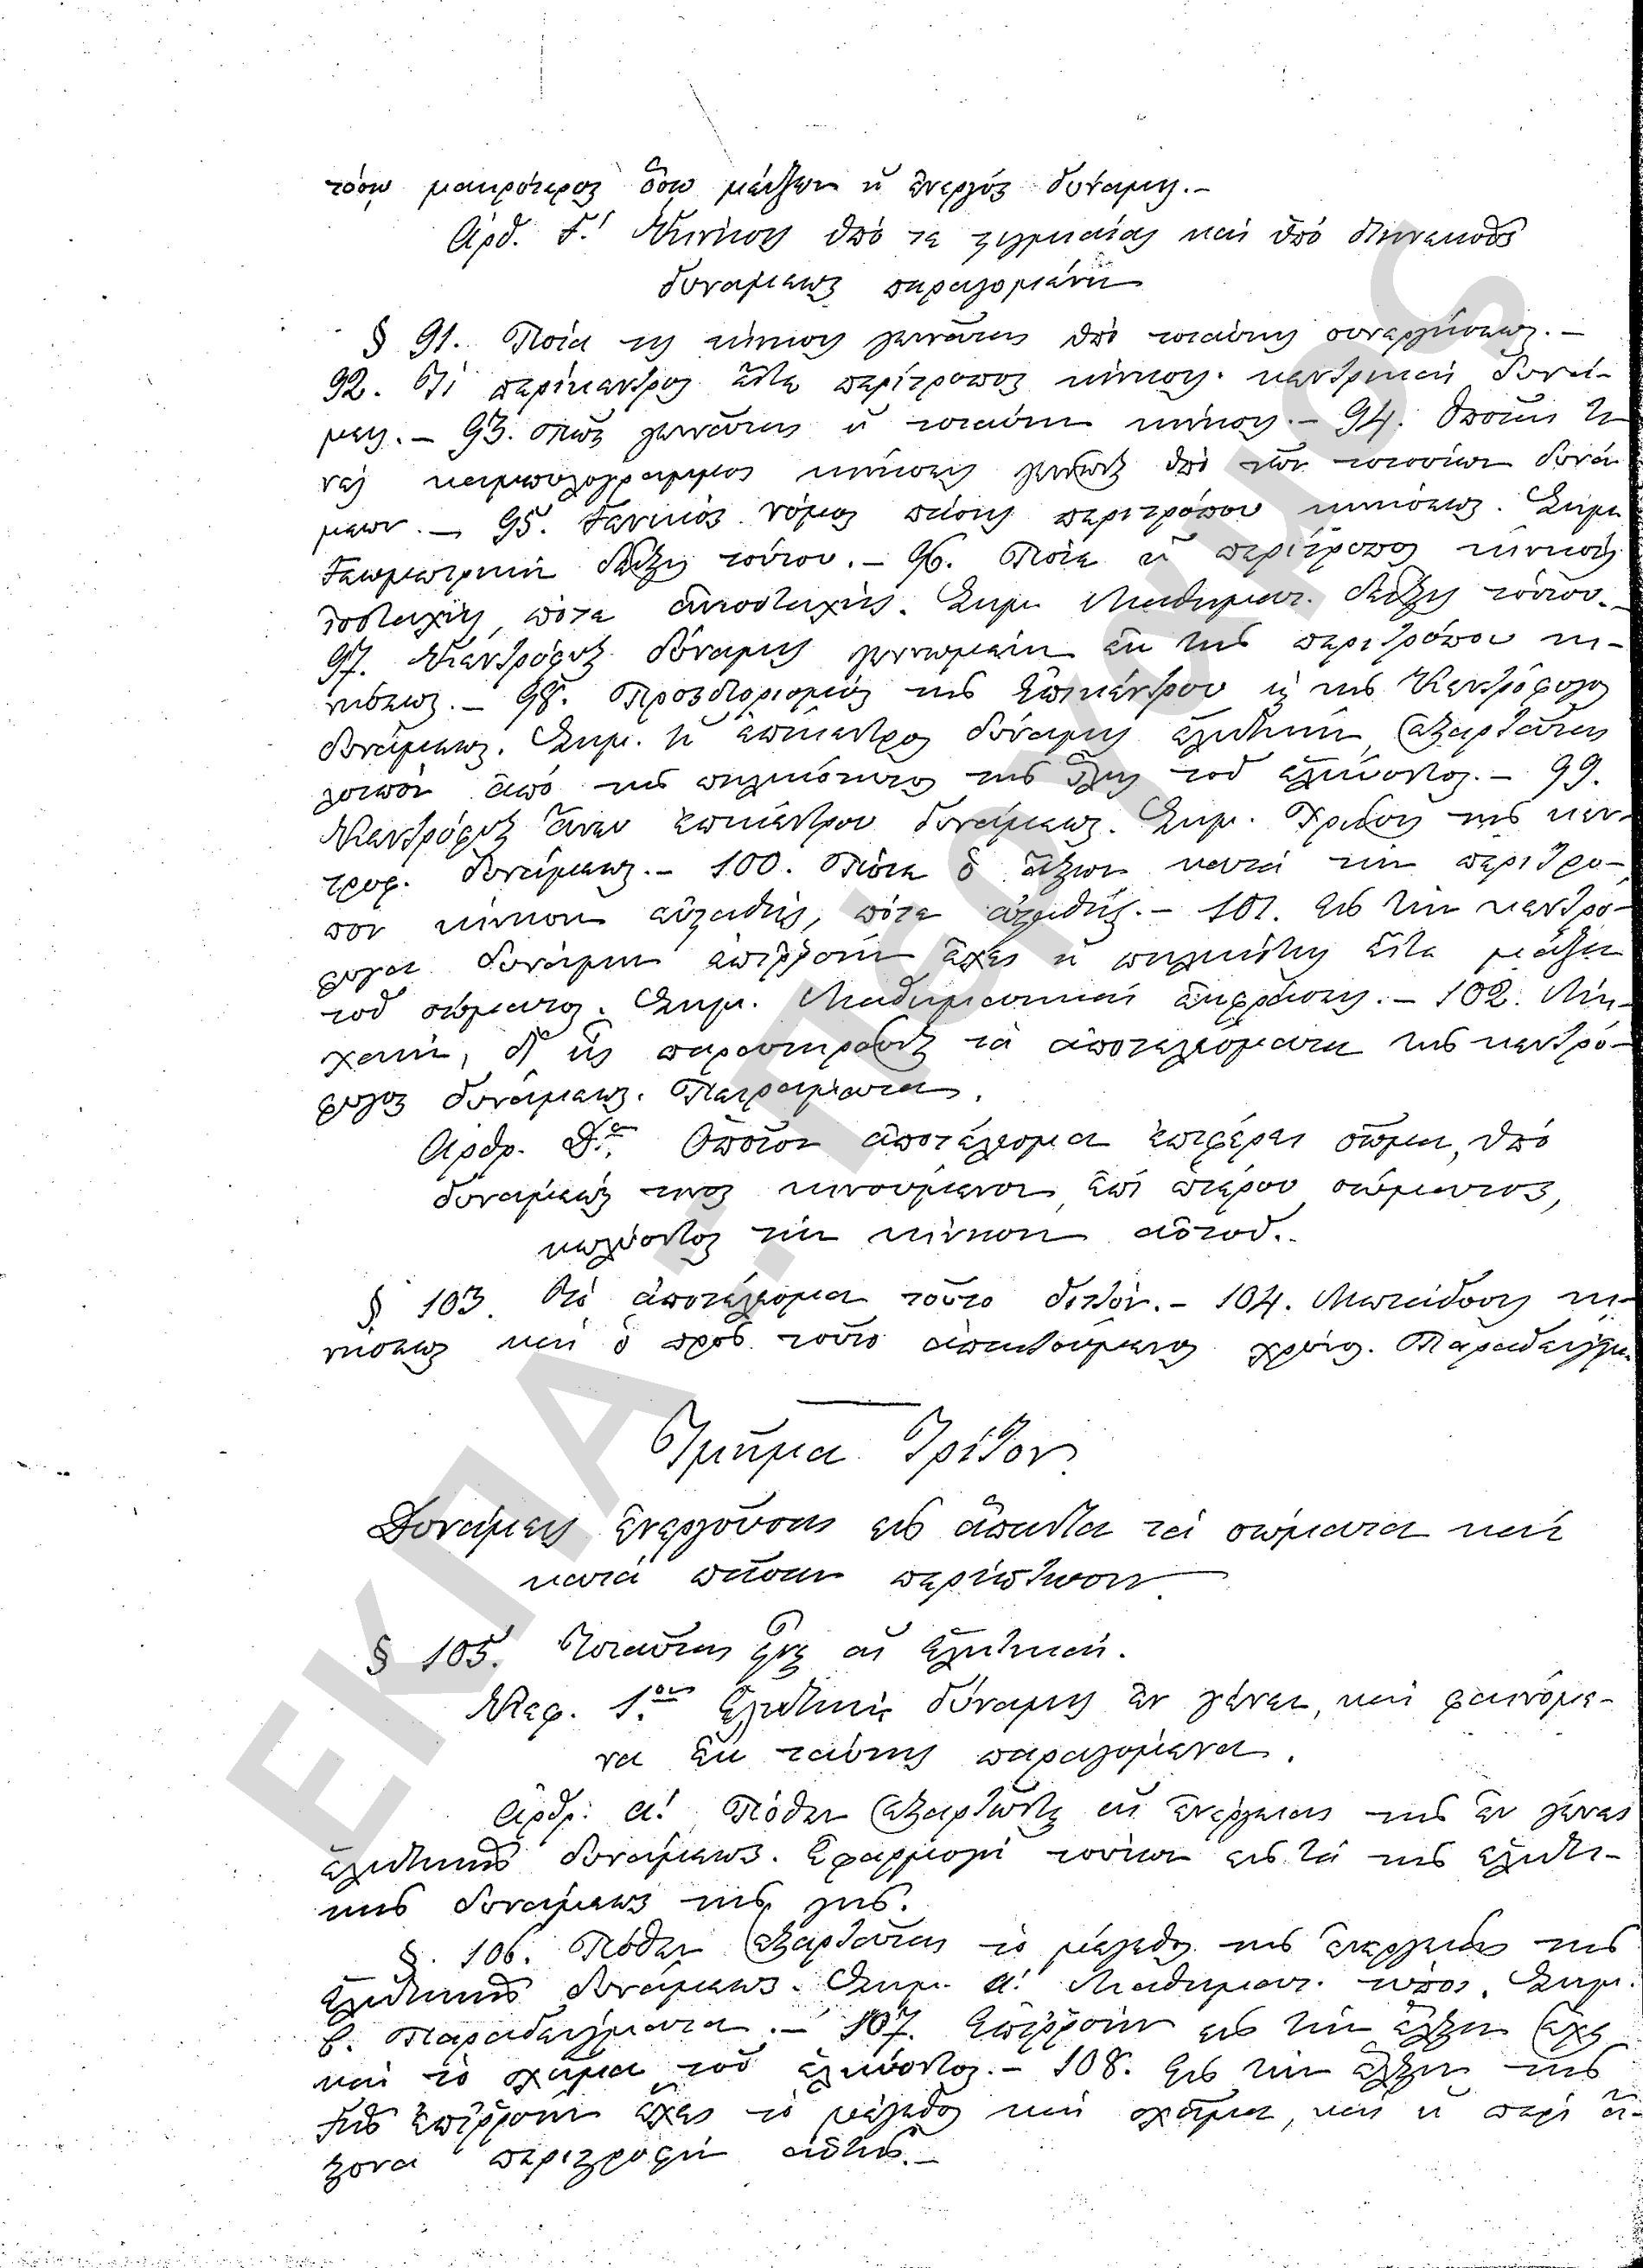 τόσῳ μακρότερος ὅσῳ μείζων ἡ ἐνεργός δύναμις.–
Ἀρθ. Γ! Κίνησις ὑπό τε στιγμιαίας καί ὑπό διηνεκοῦς
δυνάμεως παραγομένη
§ 91. Ποία τις κίνησις γεννᾶται ὑπό τοιαύτης συνεργήσεως.–
92. Τί περίκεντρος εἴτε περίτροπος κίνησις. κεντρικαί δυνά-
μεις.– 93. πῶς γεννᾶται ἡ τοιαύτη κίνησις.– 94. ὁποῖαι
καμπυλόγραμμοι κινήσεις ὑπό τῶν τοιούτων δυνά-
μεων.– 95. Γενικός νόμος πάσης περιτρόπου κινήσεως. Σημ.
Γεωμετρική δεῖξις τούτου.– 96. Πότε ἡ περίτροπος κίνησις
ἰσοταχής, πότε ἀνισοταχής. Σημ. Μαθηματ. δεῖξις τούτου.–
97. Κεντρόφυξ δύναμις γεννωμένη ἐκ τῆς περιτρόπου κι-
νήσεως.– 98. Προσδιορισμός τῆς ἐπικέντρου ἢ τῆς κεντρόφυγος
δυνάμεως. Σημ. ἡ ἐπίκεντρος δύναμις ἑλκτική, ἐξαρτᾶται
λοιπόν ἀπό τῆς πηλικότητος τῆς ὕλης τοῦ ἑλκύοντος.– 99.
Κεντρόφυξ ἄνευ ἐπικέντρου δυνάμεως. Σημ. Χρῆσις τῆς κεν-
τροφ. δυνάμεως.– 100. Πότε ὁ ἄξων κατά τήν περίτρο-
πον κίνησιν εὐσταθής, πότε ἀσταθής.– 101. Εἰς τήν κεντρό-
φυγα δύναμιν ἐπιῤῥοήν ἔχει ἡ πηλικότης εἴτε μᾶζα
τοῦ σώματος. Σημ. Μαθηματική ἔκφρασις.– 102. Μη-
χανή, δι' ἧς παρατηροῦνται τά ἀποτελέσματα τῆς κεντρό-
φυγος δυνάμεως. Πειράματα.
Ἀρθρ. Δον. Ὁποῖον ἀποτέλεσμα ἐπιφέρει σῶμα, ὑπό
δυνάμεώς τινος κινούμενον, ἐπί ἑτέρου σώματος,
κωλύοντος τήν κίνησιν αὐτοῦ..
§ 103. Τό ἀποτέλεσμα τοῦτο διττόν.– 104. Μετάδοσις κι-
νήσεως καί ὁ πρός τοῦτο ἀπαιτούμενος χρόνος. Παραδείγμ.
Τμῆμα Τρίτον.
Δυνάμεις ἐνεργοῦσαι εἰς ἅπαντα τά σώματα καί
κατά πᾶσαν περίπτωσιν.
§ 105. Τοιαῦται εἶναι αἱ ἑλκτικαί.
Κεφ. 1ον. Ἑλκτική δύναμις ἐν γένει, καί φαινόμε-
να ἐκ ταύτης παραγόμενα.
Ἀρθρ. α! Πόθεν ἐξαρτῶνται αἱ ἐνέργειαι τῆς ἐν γένει
ἑλκτικῆς δυνάμεως. Ἐφαρμογή τούτων εἰς τά τῆς ἑλκτι-
κῆς δυνάμεως τῆς γῆς.
§. 106. Πόθεν ἐξαρτᾶται τό μέγεθος τῆς ἐνεργείας τῆς
ἑλκτικῆς δυνάμεως. Σημ. α! Μαθηματ. τύπος. Σημ.
β. Παραδείγματα.– 107. Ἐπιῤῥοήν εἰς τήν ἕλξιν ἔχει
καί τό σχῆμα τοῦ ἑλκύοντος.– 108. Εἰς τήν ἕλξιν τῆς
Γῆς ἐπιῤῥοήν ἔχει τό μέγεθος καί σχῆμα, καί ἡ περί ἄ-
ξονα περιστροφή αὐτῆς.–
ΕΚΠΑ - ΠΕΡΓΑΜΟΣ